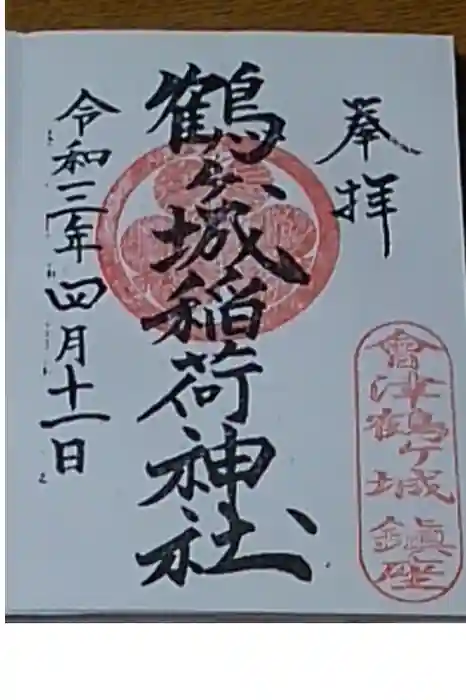 奉拝
會津鶴ヶ城鎮座
鶴ヶ城稲荷神社
令和三年四月十一日